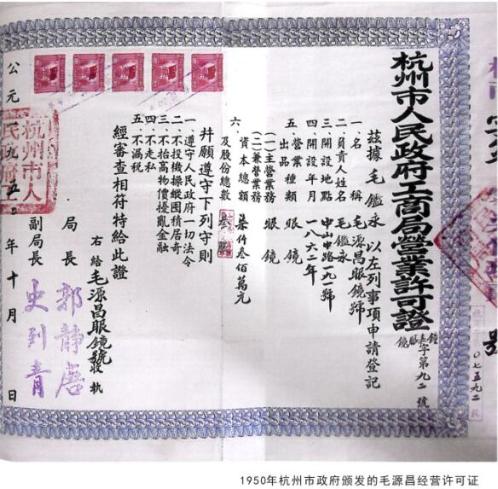 杭州市人民政府工商局營業許可證
鏡表眼鏡字第九二號
茲據毛鑑永以左列事項申請登記
一、名稱 毛源昌眼鏡號
二、負責人姓名 毛鑑永
三、開設地點 中山中路一八一號
四、開設年月 一八六二年
五、營業種類 眼鏡
出品業務
(一)主營業務 眼鏡
(二)兼營業務
六 資本總額 柒仟叁佰萬元
及股份總數
幷願遵守下列守則
一、遵守人民政府一切法令
二、不投機操縱囤積居奇
三、不抬高物價擾亂金融
四、不走私
五、不漏税
經審查相符特給此證
右給毛源昌眼鏡號收執
局長 郭靜唐
副局長 史列青
公元一九五 年十月 日
杭州市人民政府
〇七五九二
1950年杭州市政府颁发的毛源昌经营许可证